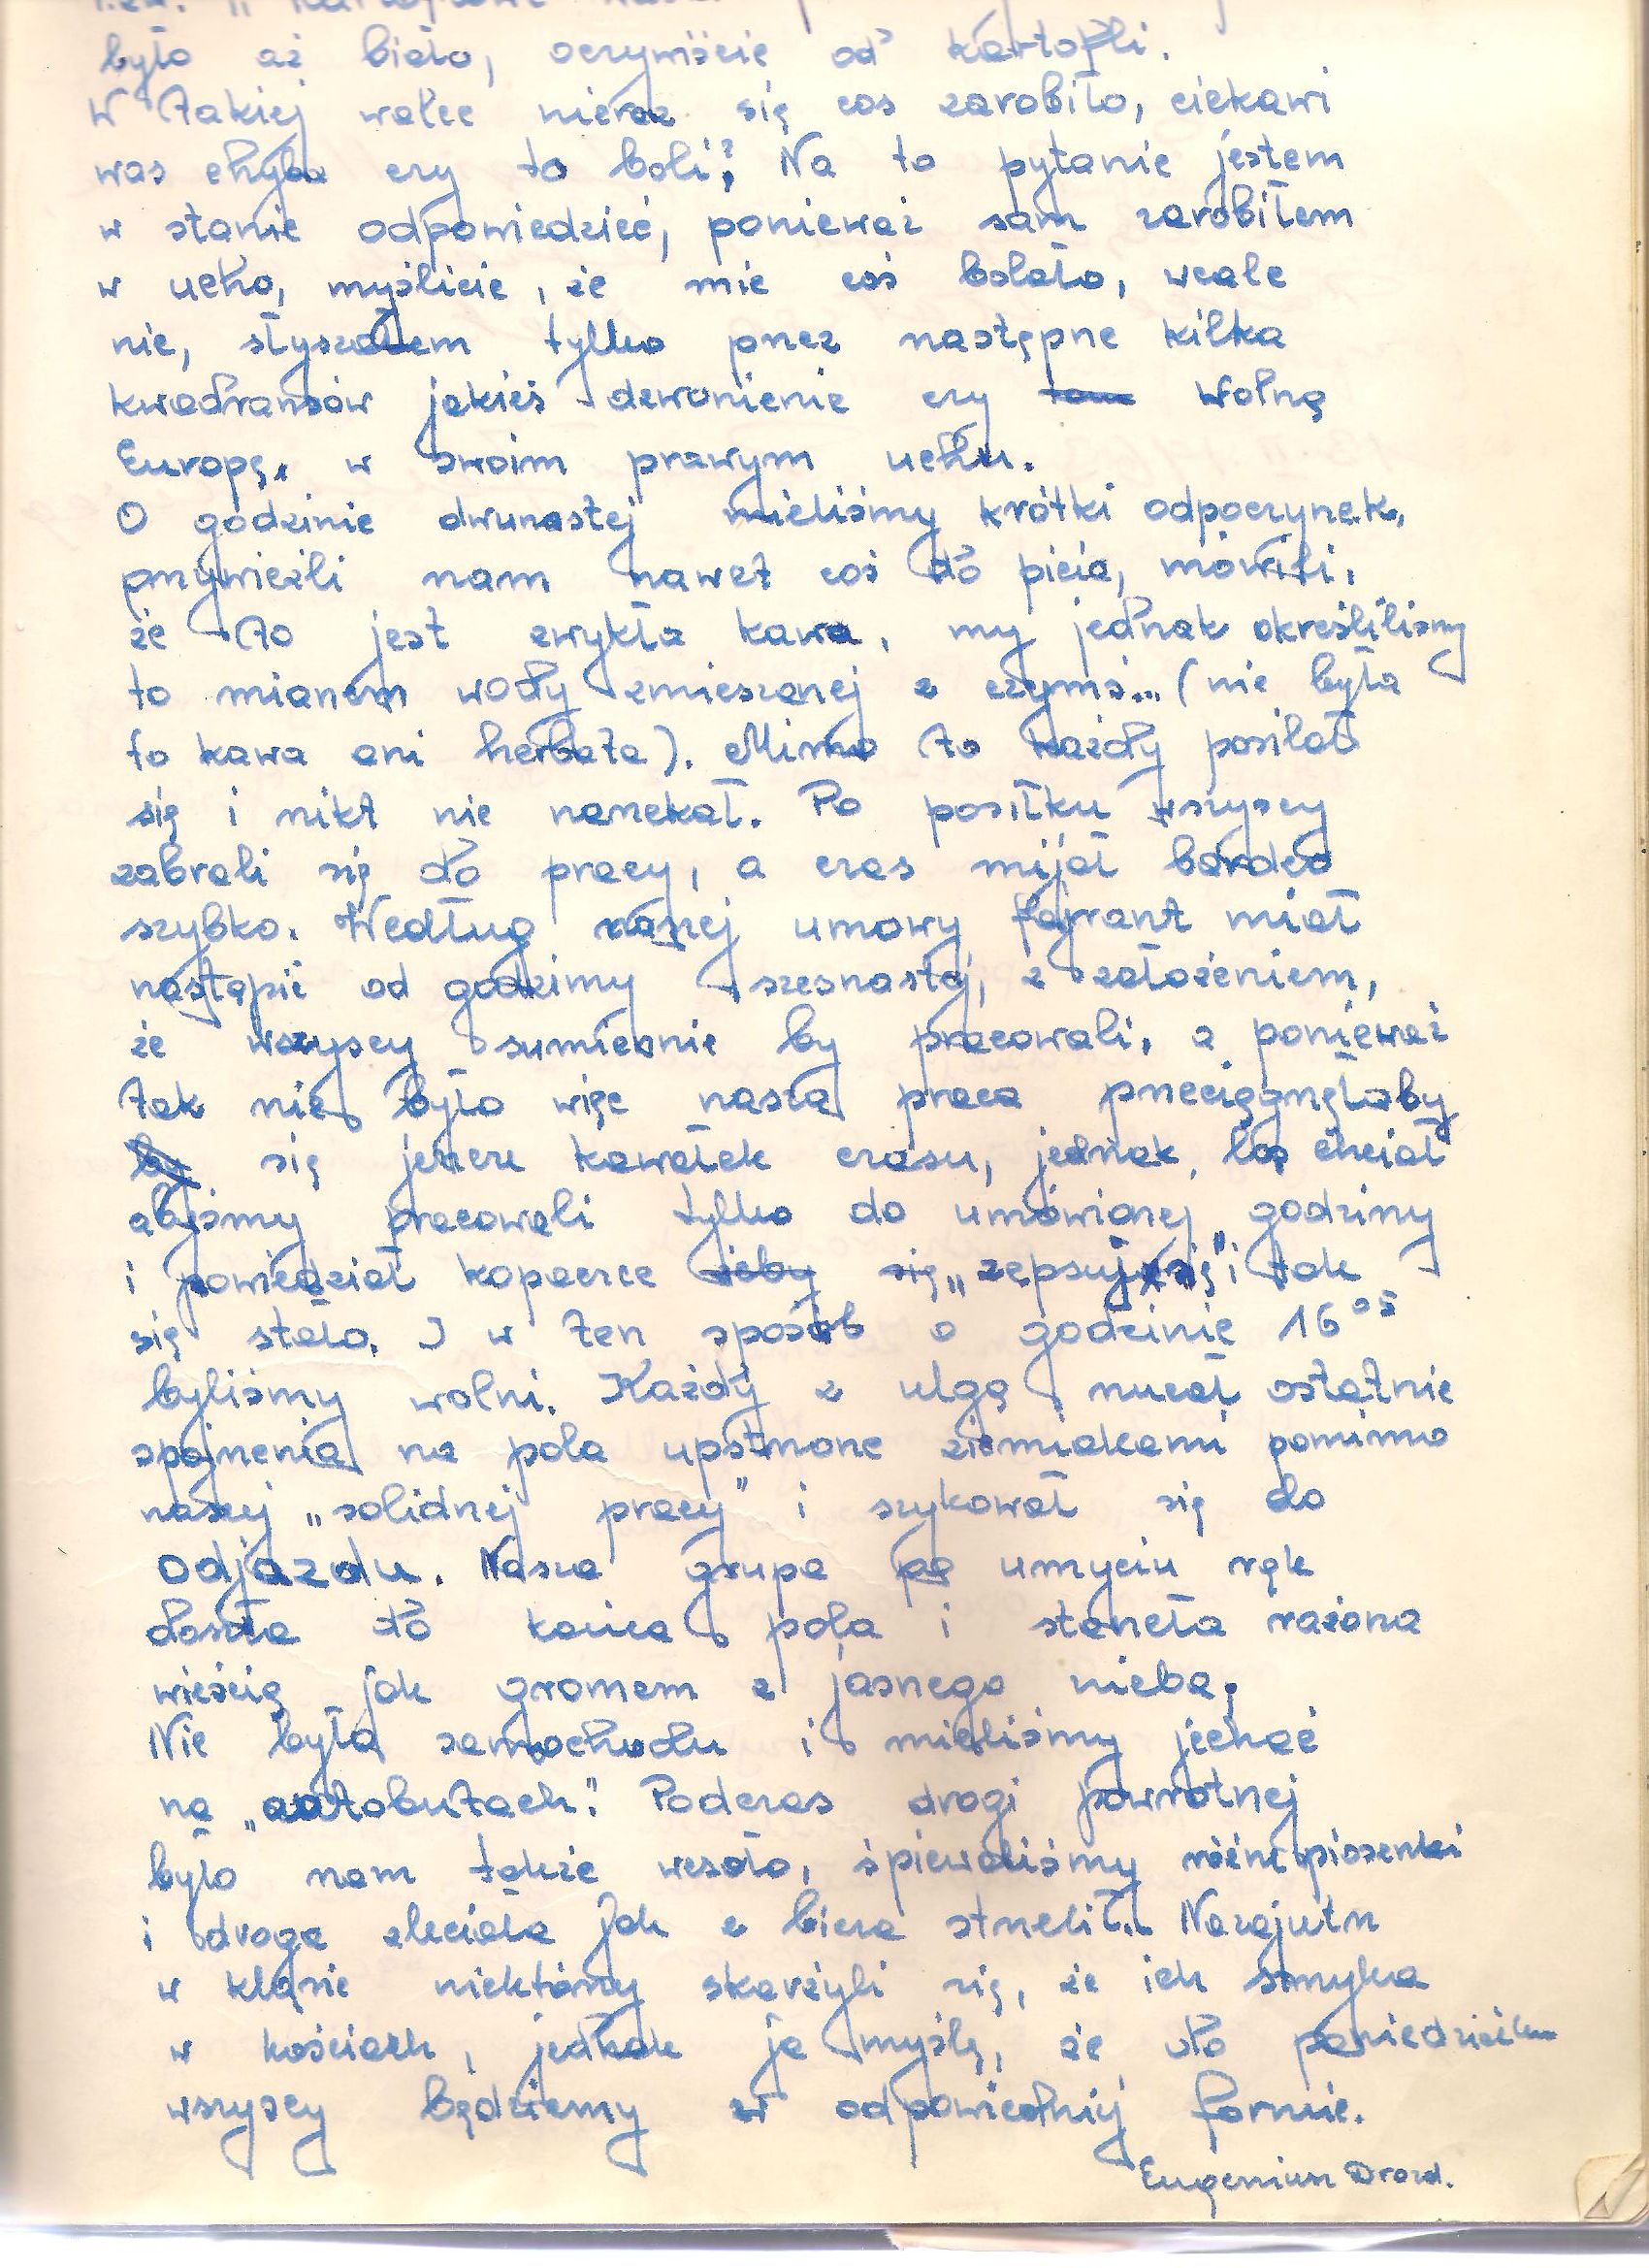 było aż biało, oczywiście od kartofli.
W takiej walce nieraz się coś zarobiło, ciekawi
was chyba czy to boli? Na to pytanie jestem
w stanie odpowiedzieć, ponieważ sam zarobiłem
w ucho, myślicie, że mie coś bolało, wcale
nie, słyszałem tylko przez następne kilka
kwadransów jakieś dzwonienie czy Wolną
Europę, w swoim prawym uchu.
O godzinie dwunastej mieliśmy krótki odpoczynek,
przywieźli nam nawet coś do picia, mówili,
że to jest zwykła kawa, my jednak określiliśmy
to mianem wody zmieszanej z czymś... (nie była
to kawa ani herbata). Mimo to każdy posilał
się i nikt nie narzekał. Po posiłku wszyscy
zabrali się do pracy, a czas mijał bardzo
szybko. Według naszej umowy fajrant miał
nastąpić od godziny szesnastej, z założeniem,
że wszyscy sumiennie by pracowali, a ponieważ
tak nie było więc nasza praca przeciągnęłaby
się jeszcze kawałek czasu, jednak los chciał
abyśmy pracowali tylko do umówionej godziny
i powiedział kopaczce „zepsuj się” i tak
się stało. I w ten sposób o godzinie 16⁰⁵
byliśmy wolni. Każdy z ulgą rzucał ostatnie
spojrzenia na pola upstrzone ziemniakami pomimo
naszej „solidnej pracy” i szykował się do
odjazdu. Nasza grupa po umyciu rąk
doszła do końca pola i stanęła rażona
wieścią jak gromem z jasnego nieba;
Nie było samochodu i mieliśmy jechać
na „autobutach”. Podczas drogi powrotnej
było nam także wesoło, śpiewaliśmy różne piosenki
i droga zleciała jak z bicza strzelił. Nazajutrz
w klasie niektórzy skarżyli się, że ich strzyka
w kościach, jednak ja myślę, że do poniedziałku
wszyscy będziemy w odpowiedniej formie.
Eugeniusz Drozd.